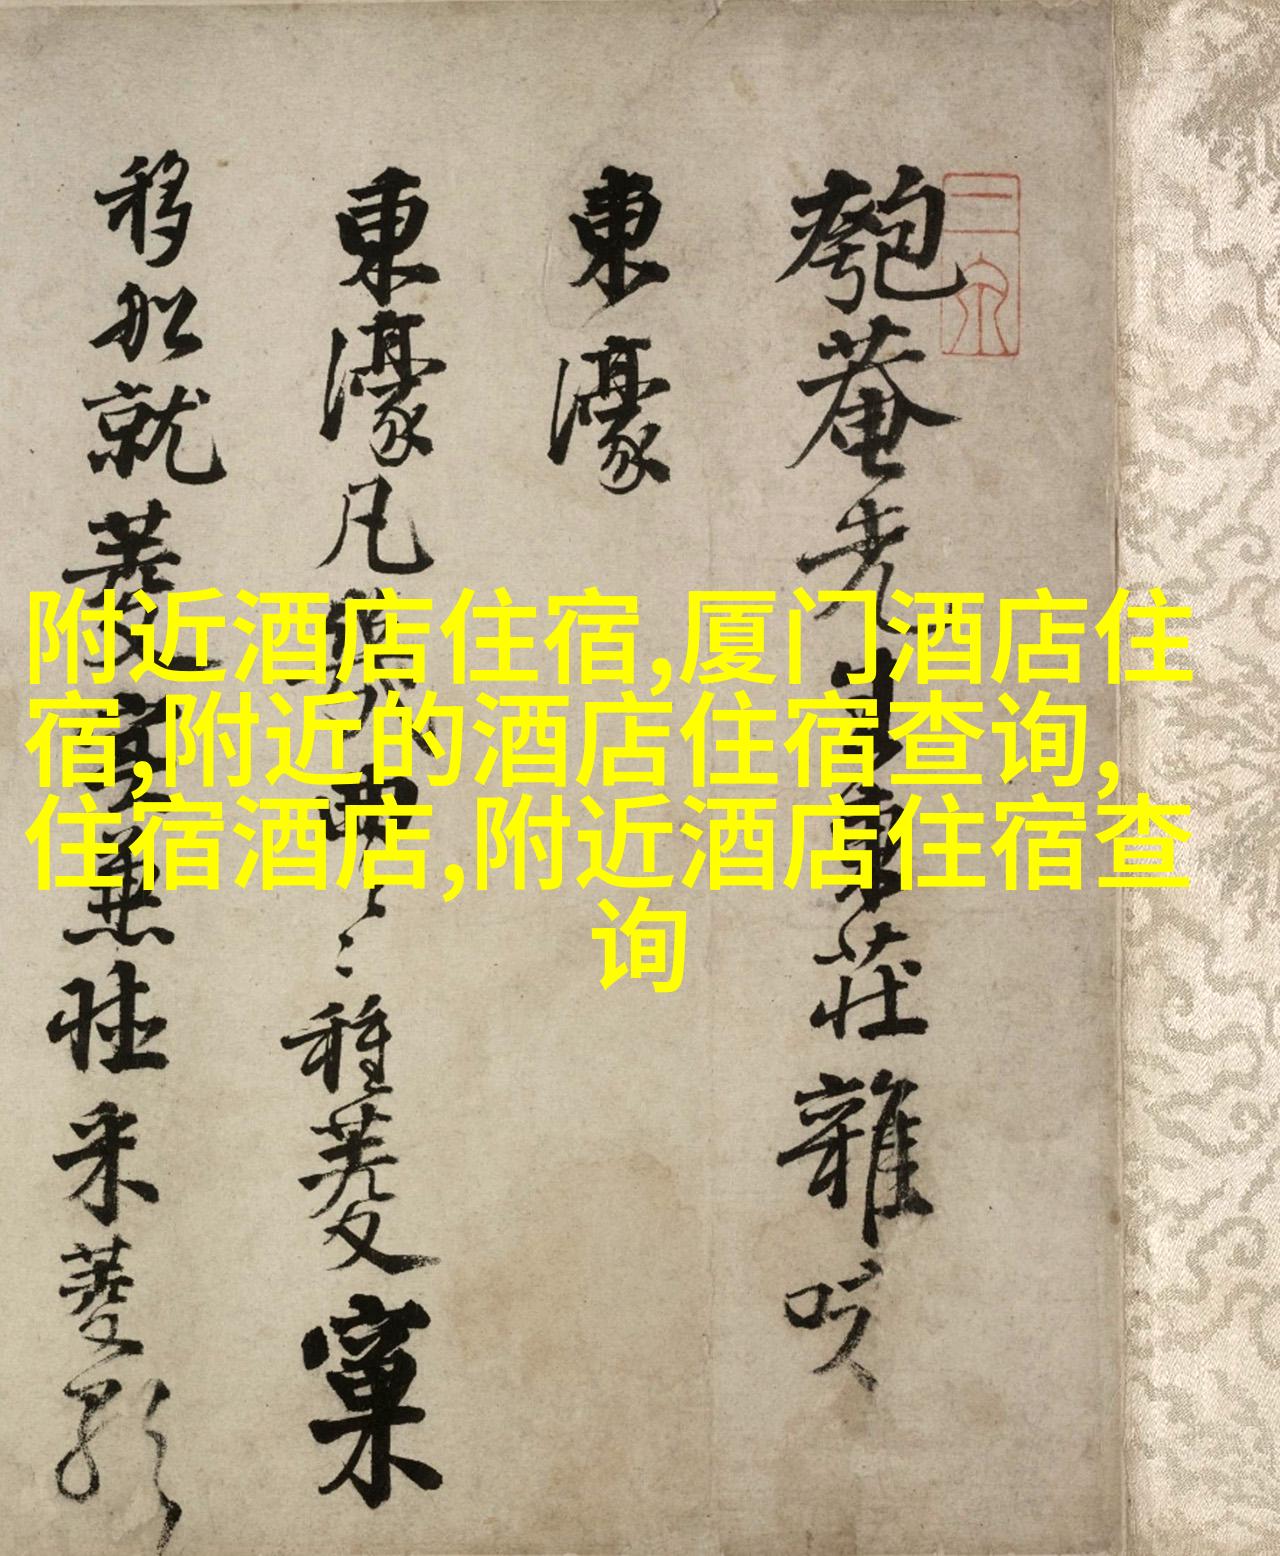 匏菴先生東莊雜咏
東濠
東濠凡幾曲〻種菱窠
移船就菱家兼歌采菱歌
附近酒店住宿,厦门酒店住
宿,附近的酒店住宿查询,
住宿酒店,附近酒店住宿查
询